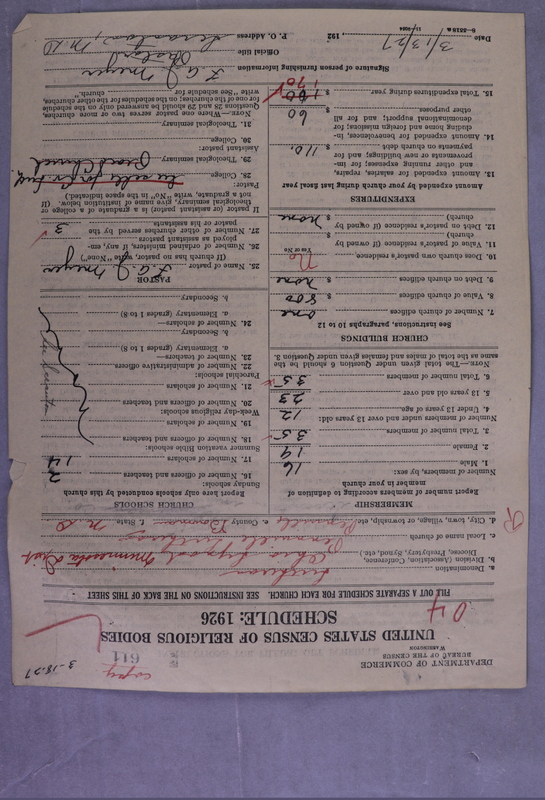 3-18-27
copy
DEPARTMENT OF COMMERCE
BUREAU OF THE CENSUS
WASHINGTON
611
UNITED STATES CENSUS OF RELIGIOUS BODIES
SCHEDULE: 1926
04
FILL OUT A SEPARATE SCHEDULE FOR EACH CHURCH. SEE INSTRUCTIONS ON THE BACK OF THIS SHEET
a. Denomination Lutheran
b. Division (Association, Conference, Diocese, Presbytery, Synod, etc.) Ohio Synod Minnesota Dist.
c. Local name of church Lutheran
d. City, town, village, or township, etc. e. County Bowman f. State N D
MEMBERSHIP
Report number of members according to definition of
member in your church
Number of members, by sex:
1. Male 16
2. Female 19
3. Total number of members 35
Number of members under and over 13 years old:
4. Under 13 years of age 12
5. 13 years old and over 23
6. Total number of members 35
NOTE.—The total given under Question 6 should be the
same as the total of males and females given under Question 3.
CHURCH BUILDINGS
See Instructions, paragraphs 10 to 12
7. Number of church edifices one
8. Value of church edifices $ 800
9. Debt on church edifices $ none
10. Does church own pastor's residence No
Yes or No
11. Value of pastor's residence (if owned by
church) $
12. Debt on pastor's residence (if owned by
church) $ none
EXPENDITURES
Amount expended by your church during last fiscal year
13. Amount expended for salaries, repairs,
and other running expenses; for im-
provements or new buildings; and for
payments on church debt $ 110.
14. Amount expended for benevolences, in-
cluding home and foreign missions; for
denominational support; and for all
other purposes $ 60
15. Total expenditures during year $ 170
CHURCH SCHOOLS
Report here only schools conducted by this church
Sunday schools:
16. Number of officers and teachers 2
17. Number of scholars 14
Summer vacation Bible schools:
18. Number of officers and teachers
19. Number of scholars
Week-day religious schools:
20. Number of officers and teachers
21. Number of scholars
Parochial schools:
22. Number of administrative officers
23. Number of teachers—
a. Elementary (grades 1 to 8)
b. Secondary
24. Number of scholars—
a. Elementary (grades 1 to 8)
b. Secondary
PASTOR
25. Name of pastor F. A. J. Meyer
(If church has no pastor, write "None")
26. Number of ordained ministers, if any, em-
ployed as assistant pastors
27. Number of other churches served by the
pastor or his assistants 3
If pastor (or assistant pastor) is a graduate of a college or
theological seminary, give name of institution below. (If
not a graduate, write "No" in the space indicated.)
Pastor:
28. College
29. Theological seminary
Assistant pastor:
30. College
31. Theological seminary
NOTE.—Where one pastor serves two or more churches,
Questions 28 and 29 should be answered only on the schedule
for one of the churches; on the schedules for the other churches,
write "See schedule for church."
Signature of person furnishing information F. A. J. Meyer
Official title
Date 3/13/27, 192 P. O. Address Scranton, N. D.
8—5518 a 11—9084